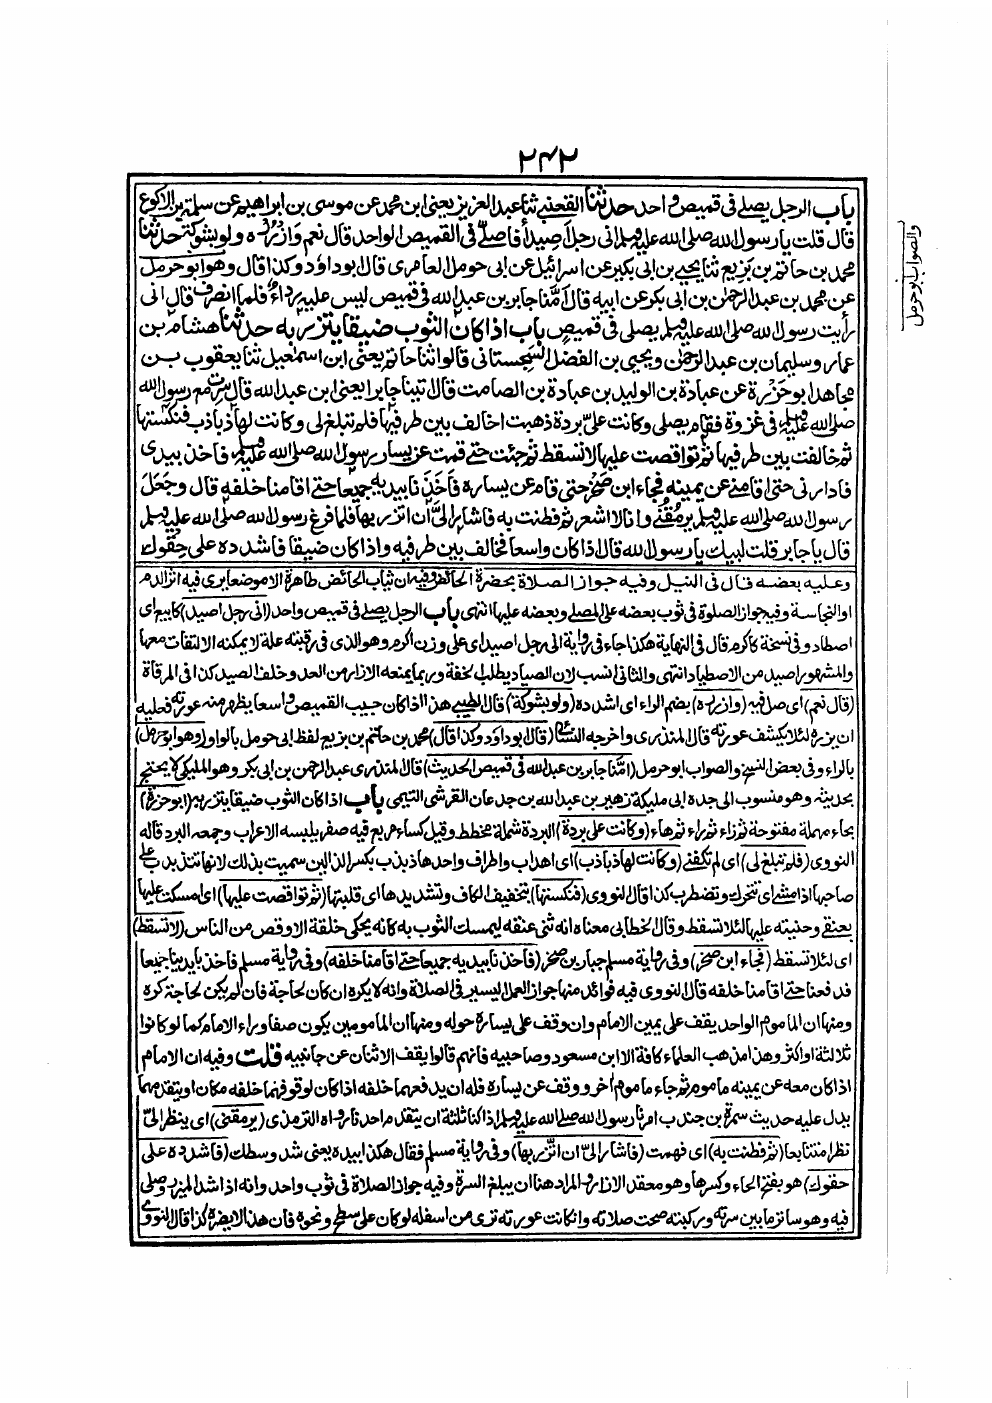 ۲۴۲
باب الرجل يصلى فى قميص واحد حدثنا القعنبى ثنا عبد العزيز يعنى ابن محمد عن موسى بن ابراهيم عن سلمة بن الاكوع
قال قلت يا رسول الله صلى الله عليه وسلم انى رجل اصيد أفاصلى فى القميص الواحد قال نعم وازرره ولو بشوكة حدثنا
محمد بن حاتم بن بزيع ثنا يحيى بن ابى بكير عن اسرائيل عن ابى حومل العامرى قال ابوداؤد وكذا قال وهو ابو حرمل
عن محمد بن عبد الرحمن بن ابى بكر عن ابيه قال أمنا جابر بن عبد الله فى قميص ليس عليه رداء فلما انصرف قال انى
رأيت رسول الله صلى الله عليه وسلم يصلى فى قميص باب اذا كان الثوب ضيقا يتزر به حدثنا هشام بن
عمار وسليمان بن عبد الرحمن ويحيى بن الفضل السجستانى قالوا ثنا حاتم يعنى ابن اسمعيل ثنا يعقوب بن
مجاهد ابو حزرة عن عبادة بن الوليد بن عبادة بن الصامت قال اتينا جابرا يعنى ابن عبد الله قال سرت مع رسول الله
صلى الله عليه وسلم فى غزوة فقام يصلى وكانت على بردة ذهبت اخالف بين طرفيها فلم تبلغ لى وكانت لها ذباذب فنكستها
ثم خالفت بين طرفيها ثم تواقصت عليها لا تسقط ثم جئت حتى قمت عن يسار رسول الله صلى الله عليه وسلم فاخذ بيدى
فادارنى حتى اقامنى عن يمينه فجاء ابن صخر حتى قام عن يساره فأخذنا بيديه جميعا حتى اقامنا خلفه قال وجعل
رسول الله صلى الله عليه وسلم يرمقنى وانا لا اشعر ثم فطنت به فاشار الىّ ان اتزر بها فلما فرغ رسول الله صلى الله عليه وسلم
قال يا جابر قلت لبيك يا رسول الله قال اذا كان واسعا فخالف بين طرفيه واذا كان ضيقا فاشدده على حقوك
وعليه بعضه قال فى النيل وفيه جواز الصلاة بحضرة الحائض وفيه ان ثياب الحائض طاهرة الا موضعا يرى فيه اثر الدم
او النجاسة وفيه جواز الصلوة فى ثوب بعضه على المصلى وبعضه عليها انتهى باب الرجل يصلى فى قميص واحد (انى رجل اصيد) كابيع اى
اصطاد وفى نسخة كاكرم قال فى النهاية هكذا جاء فى رواية انى رجل اصيد اى على وزن اكرم وهو الذى فى رقبته علة لا يمكنه الالتفات معها
والمشهور اصيد من الاصطياد انتهى والثانى انسب لان الصياد يطلب الخفة وربما يمنعه الازار من العدو خلف الصيد كذا فى المرقاة
(قال نعم) اى صل فيه (وازرره) بضم الراء اى اشدده (ولو بشوكة) قال الطيبى هذا اذا كان جيب القميص واسعا يظهر منه عورته فعليه
ان يزره لئلا يكشف عورته قال المنذرى واخرجه النسائى (قال ابو داؤد وكذا قال) محمد بن حاتم بن بزيع لفظ ابى حومل بالواو (وهو ابو حرمل)
بالراء وفى بعض النسخ والصواب ابو حرمل (امنا جابر بن عبد الله فى قميص الحديث) قال المنذرى عبد الرحمن بن ابى بكر وهو المليكى لا يحتج
بحديثه وهو منسوب الى جده ابى مليكة زهير بن عبد الله بن جدعان القرشى التيمى باب اذا كان الثوب ضيقا يتزر به (ابو حزرة)
بحاء مهملة مفتوحة ثم زاء ثم راء ثم هاء (وكانت على بردة) البردة شملة مخطط وقيل كساء مربع فيه صفر يلبسه الاعراب وجمعه البرد قاله
النووى (فلم تبلغ لى) اى لم تكفنى (وكانت لها ذباذب) اى اهداب واطراف واحدها ذبذب بكسر الذالين سميت بذلك لانها تتذبذب على
صاحبها اذا مشى اى تتحرك وتضطرب كذا قال النووى (فنكستها) بتخفيف الكاف وتشديدها اى قلبتها (ثم تواقصت عليها) اى امسكت عليها
بعنقى وحنيته عليها لئلا تسقط وقال الخطابى معناه انه ثنى عنقه ليمسك الثوب به كانه يحكى خلقة الاوقص من الناس (لا تسقط)
اى لئلا تسقط (فجاء ابن صخر) وفى رواية مسلم جبار بن صخر (فاخذنا بيديه جميعا حتى اقامنا خلفه) وفى رواية مسلم فاخذ بايدينا جميعا
فدفعنا حتى اقامنا خلفه قال النووى فيه فوائد منها جواز العمل اليسير فى الصلاة وانه لا يكره ان كان لحاجة فان لم يكن لحاجة كره
ومنها ان الماموم الواحد يقف على يمين الامام وان وقف على يساره حوله ومنها ان المامومين يكون صفا وراء الامام كما لو كانوا
ثلاثة او اكثر وهذا مذهب العلماء كافة الا ابن مسعود وصاحبيه فانهم قالوا يقف الاثنان عن جانبيه قلت وفيه ان الامام
اذا كان معه عن يمينه ماموم ثم جاء ماموم آخر ووقف عن يساره فله ان يدفعهما خلفه اذا كان لوقوفهما خلفه مكان او يتقدمهما
يدل عليه حديث سمرة بن جندب امرنا رسول الله صلى الله عليه وسلم اذا كنا ثلثة ان يتقدم احدنا رواه الترمذى (يرمقنى) اى ينظر الىّ
نظرا متتابعا (ثم فطنت به) اى فهمت (فاشار الىّ ان اتزر بها) وفى رواية مسلم فقال هكذا بيده يعنى شد وسطك (فاشدده على
حقوك) هو بفتح الحاء وكسرها وهو معقد الازار والمراد هنا ان يبلغ السرة وفيه جواز الصلاة فى ثوب واحد وانه اذا شد المئزر وصلى
فيه وهو ساتر ما بين سرته وركبته صحت صلاته وان كانت عورته ترى من اسفله لو كان على سطح ونحوه فان هذا لا يضره كذا قال النووى
والصواب ابو حرمل